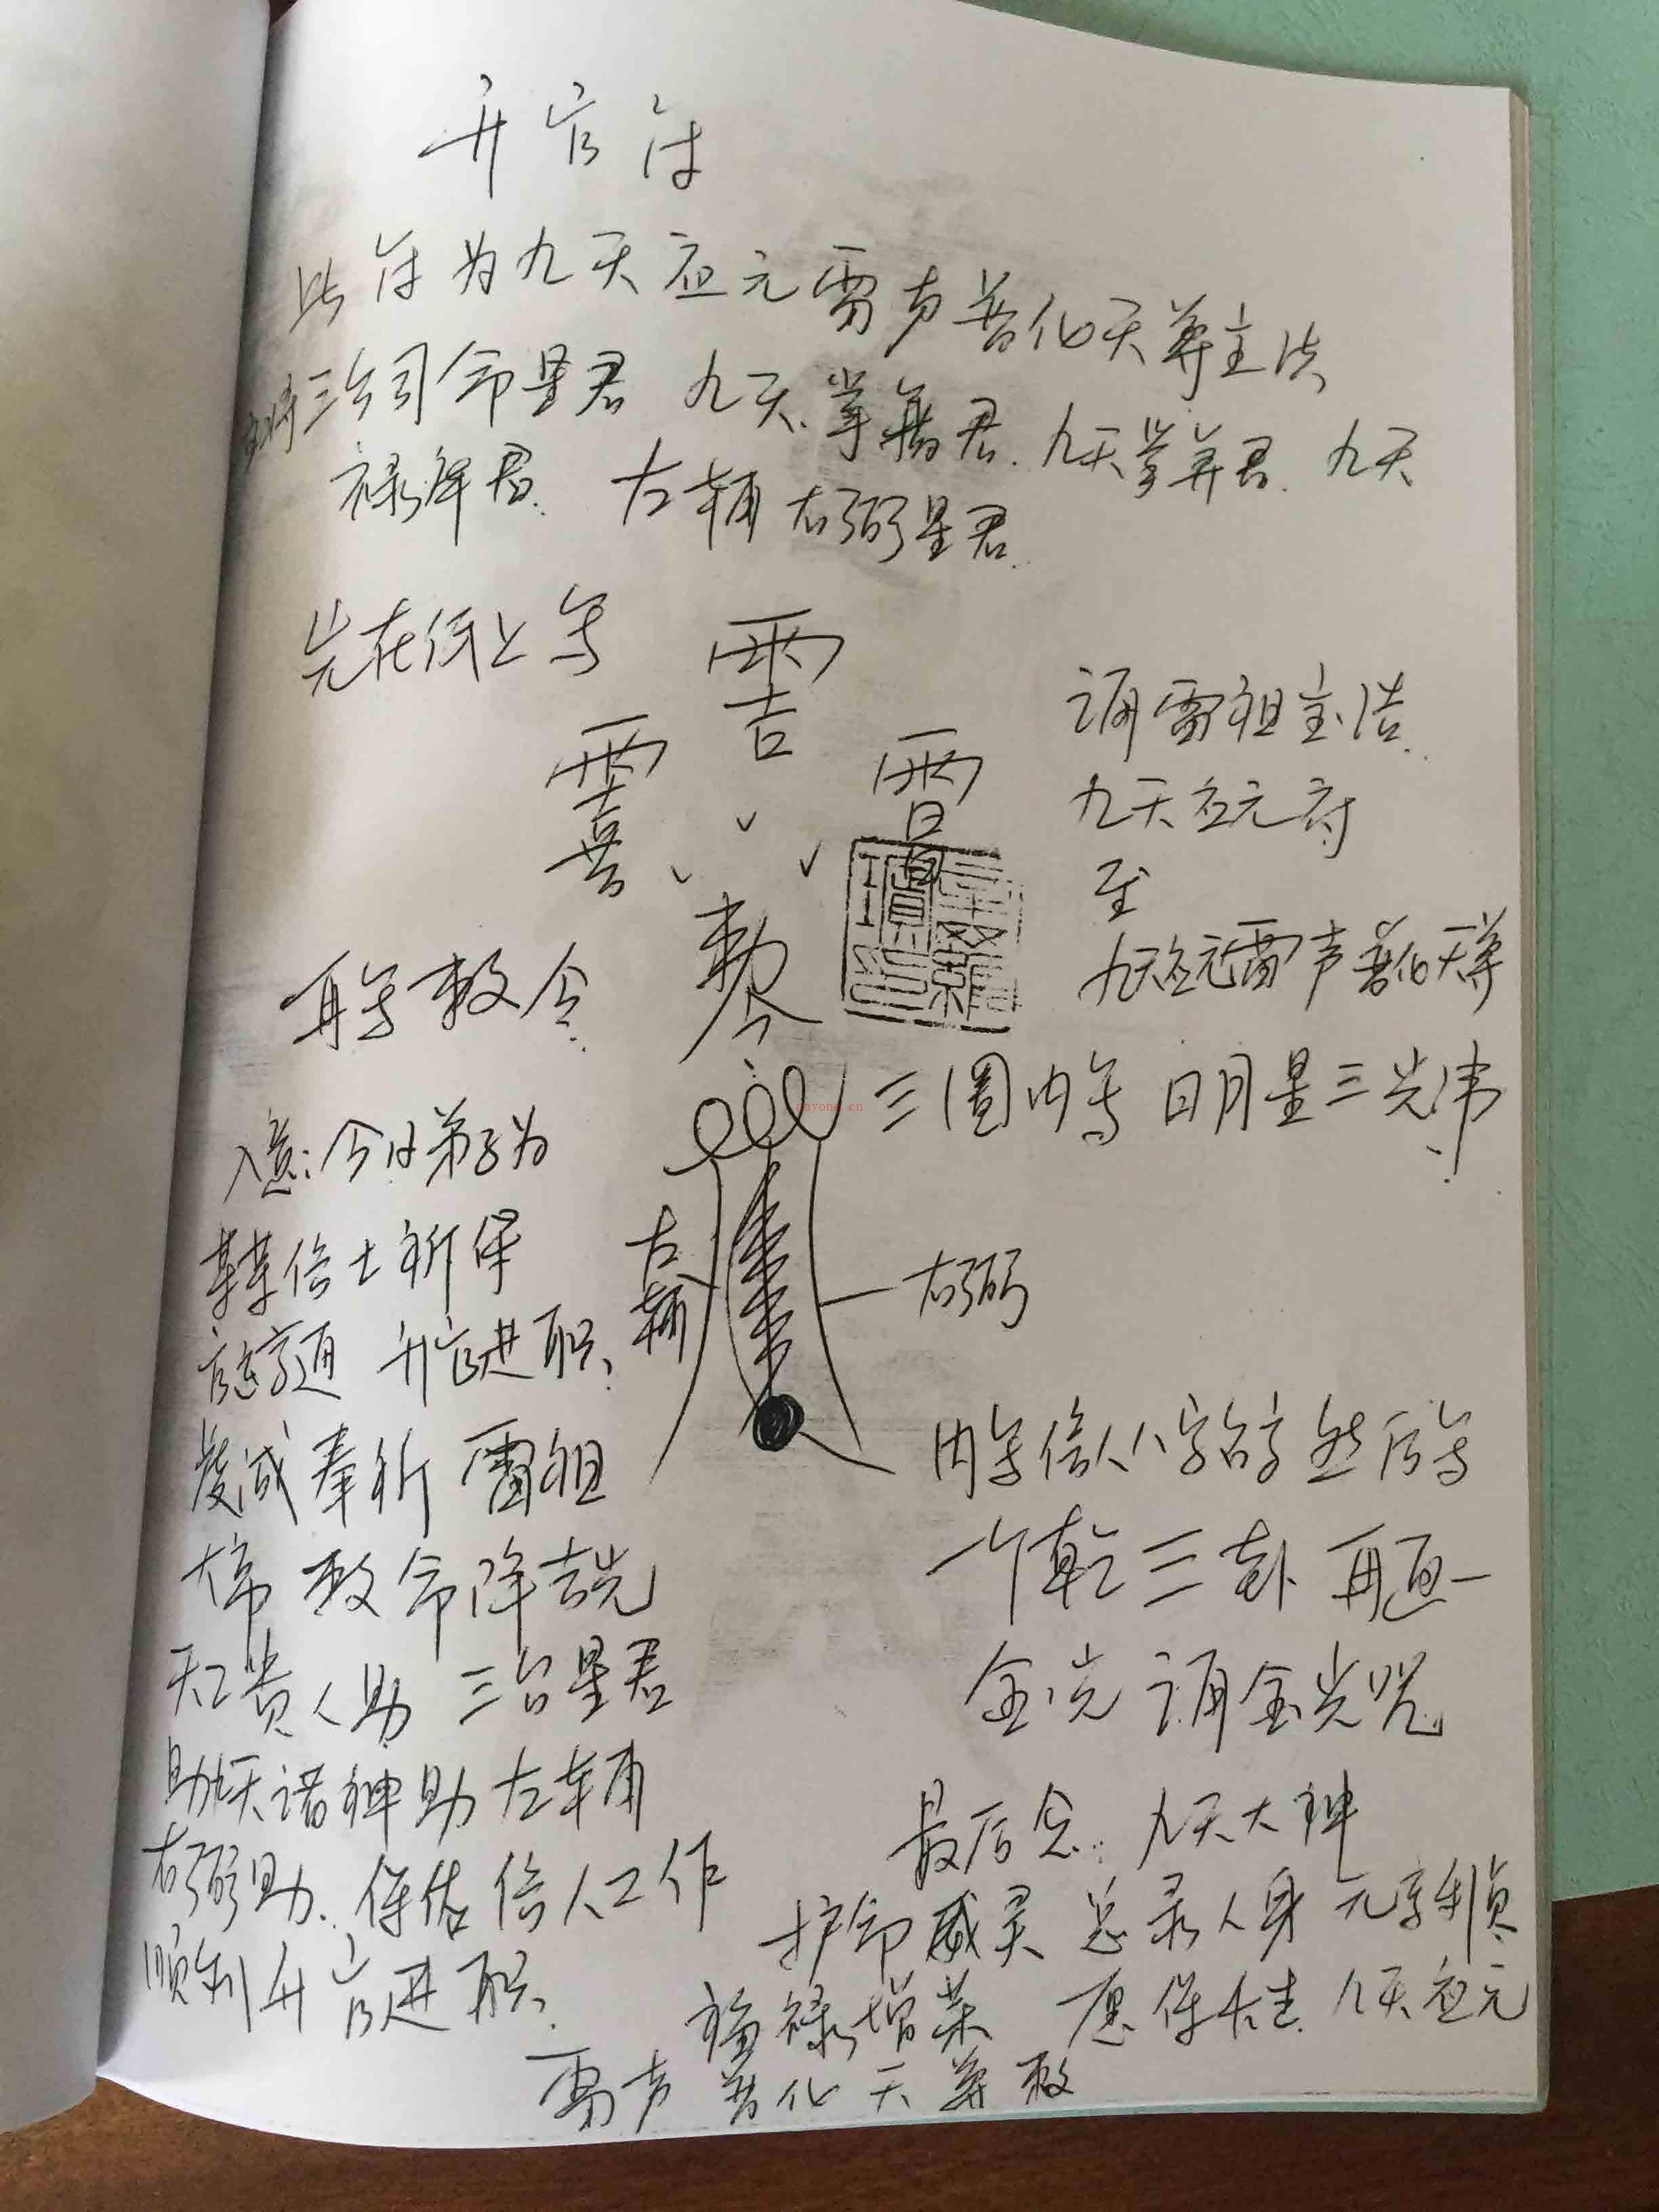 升官符
此符为九天应元雷声普化天尊主法
三台司命星君 九天掌籍君、九天掌算君、九天
禄库君、左辅右弼星君.
先在纸上写
再写敕令
敕令
诵雷祖宝诰.
九天应元府
至
九天应元雷声普化天尊
三圈内写 日月星三光讳
入意:今日弟子为
某某信士祈保
官运亨通 升官进职、
虔诚奉祈 雷祖
大帝 敕命降吉光
天上贵人助 三台星君
助九天诸神助左辅
右弼助.保佑信人工作
顺利升官进职、
左辅
右弼
内写信人八字名字 然后写
一个乾三卦 再画一
金光 诵金光咒
最后念:九天大神
护命威灵 总录人身 元亨利贞
福禄增荣 愿保长生 九天应元
雷声普化天尊敕
ayong.cn